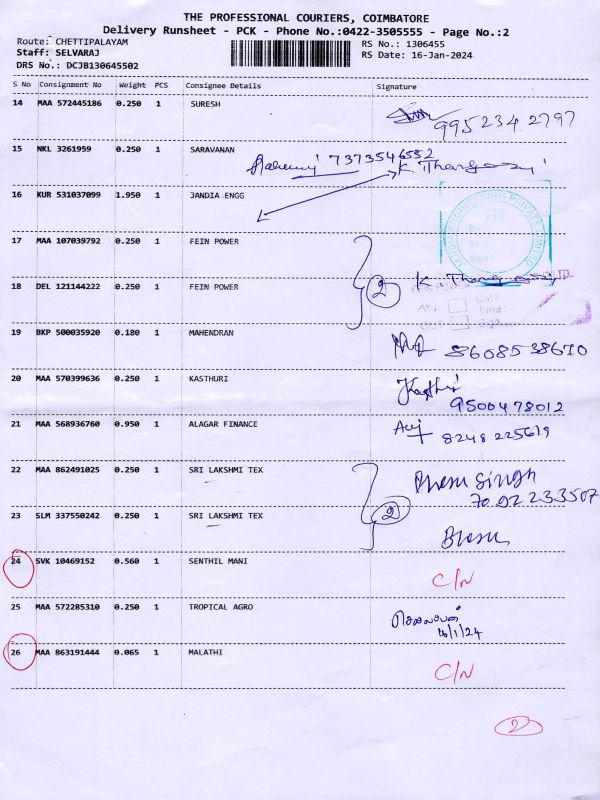 THE PROFESSIONAL COURIERS, COIMBATORE
Delivery Runsheet - PCK - Phone No.:0422-3505555 - Page No.:2
Route: CHETTIPALAYAM RS No.: 1306455
Staff: SELVARAJ RS Date: 16-Jan-2024
DRS No.: DCJB130645502
S No Consignment No Weight PCS Consignee Details Signature
14 MAA 572445186 0.250 1 SURESH
995234 2797
15 NKL 3261959 0.250 1 SARAVANAN
7373546552
K. Thangasamy
16 KUR 531037099 1.950 1 JANDIA ENGG
17 MAA 107039792 0.250 1 FEIN POWER
18 DEL 121144222 0.250 1 FEIN POWER
2 K. Thangasamy
19 BKP 500035920 0.180 1 MAHENDRAN
8608538670
20 MAA 570399636 0.250 1 KASTHURI
Kasthuri
9500478012
21 MAA 568936760 0.950 1 ALAGAR FINANCE
8248 225619
22 MAA 862491025 0.250 1 SRI LAKSHMI TEX
Singh
70 92 233507
23 SLM 337550242 0.250 1 SRI LAKSHMI TEX
2
24 SVK 10469152 0.560 1 SENTHIL MANI
C/N
25 MAA 572285310 0.250 1 TROPICAL AGRO
16/1/24
26 MAA 863191444 0.065 1 MALATHI
C/N
2